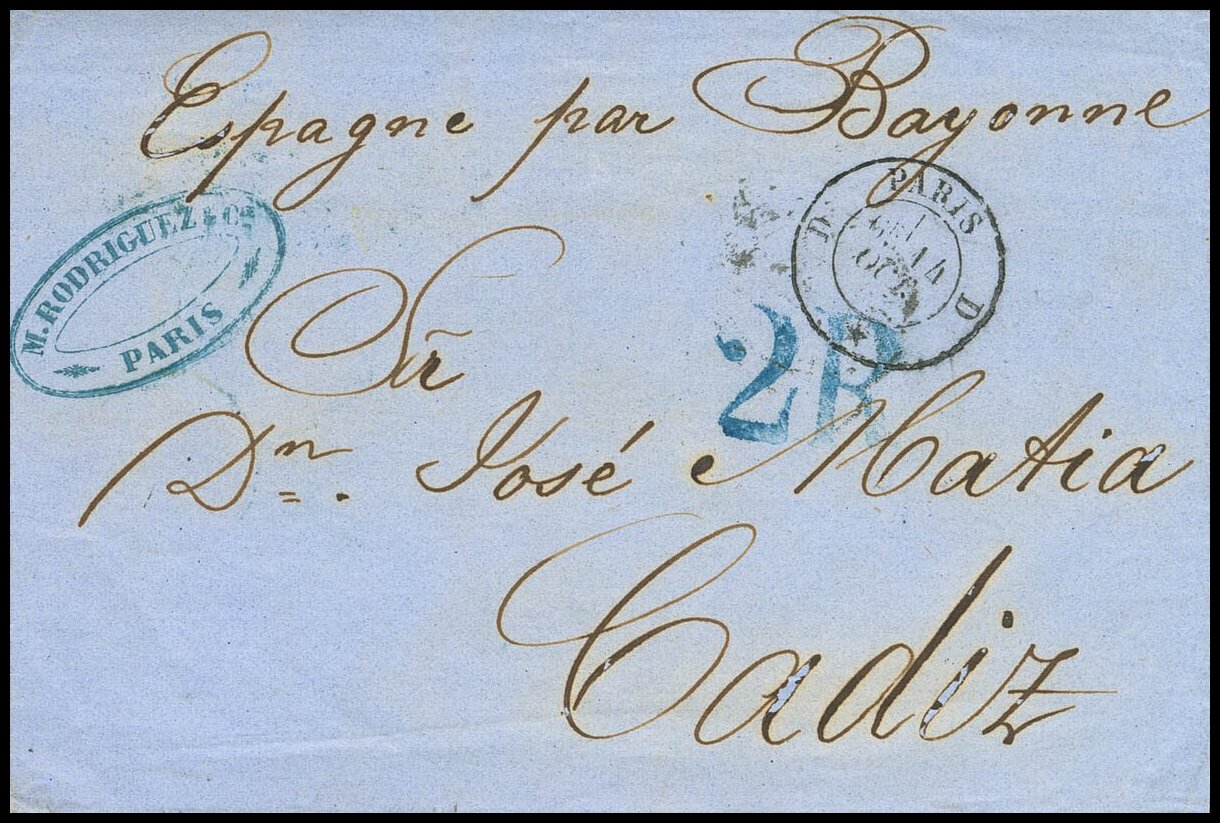 Espagne par Bayonne
M. RODRIGUEZ & Cie
PARIS
PARIS
D D
14
OCT.
Sr
2R
Dn. José Matia
Cadiz